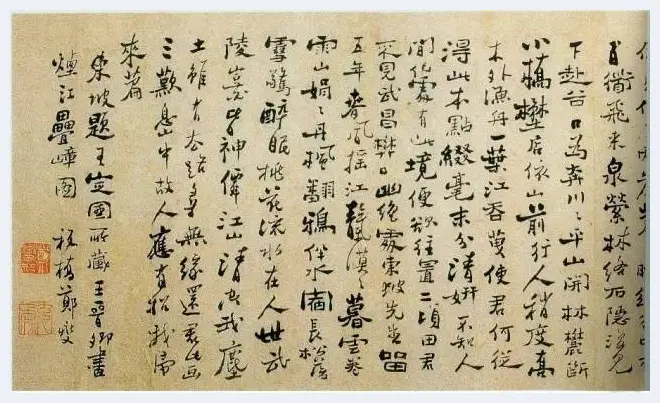 百衜飛来泉縈林絡石隱復見
下赴谷口為奔川々平山開林麓斷
小橋壄店依山前行人稍度喬
木外漁舟一葉江吞靝使君何從
得此本點綴毫末分清妍不知人
間何處有此境便欲往置二頃田君
不見武昌樊口幽絕處東坡先生留
五年春風搖江靝漠々暮雲卷
雨山娟々丹楓翻鴉伴水宿長松落
雪驚醉眠桃花流水在人世武
陵豈皆神僊江山清空我塵
土雖有去路尋無緣還君此畫
三歎息山中故人應有招我歸
來篇
東坡題王定國所藏王晉卿畫
煙江疊嶂圖 板橋鄭燮